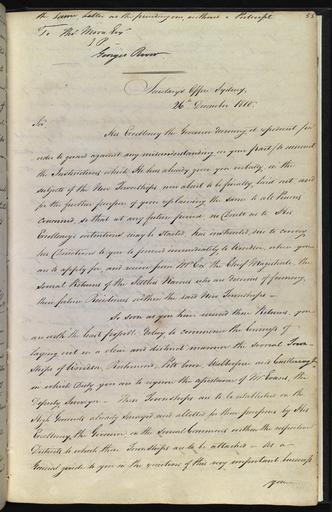 the same letter as the preceding one, without a Postscript
53
To Thos. Moore Esqr.
J P
Georges River
Secretary's Office, Sydney,
26th December 1810.
Sir,
His Excellency the Governor deeming it expedient, in
order to guard against any misunderstanding on your part, to
the Instructions which He has already given you verbally, on the
subject of the New Townships now about to be finally laid out and
for the further purpose of your explaining the same to all Persons
concerned, so that at any future period no Doubt as to His
Excellency's intentions may be started, has instructed me to convey
his Directions to you to proceed immediately to Windsor, where you
are to apply for, and receive from Mr. Cox the Chief Magistrate, the
several Returns of the Settlers Names who are desirous of forming
their future Residence within the said New Townships.—
So soon as you have received these Returns, you
are with the least possible delay, to commence the business of
laying out in a clear and distinct manner the several Town-
ships of Windsor, Richmond, Pitt Town, Wilberforce and Castlereagh
in which Duty you are to require the assistance of Mr. Evans, the
Deputy Surveyor — These Townships are to be established on the
High Grounds already surveyed and allotted for these purposes by His
Excellency, the Governor in the several Commons within the respective
Districts to which those Townships are to be attached — As a
General guide to you in the execution of this very important business
you